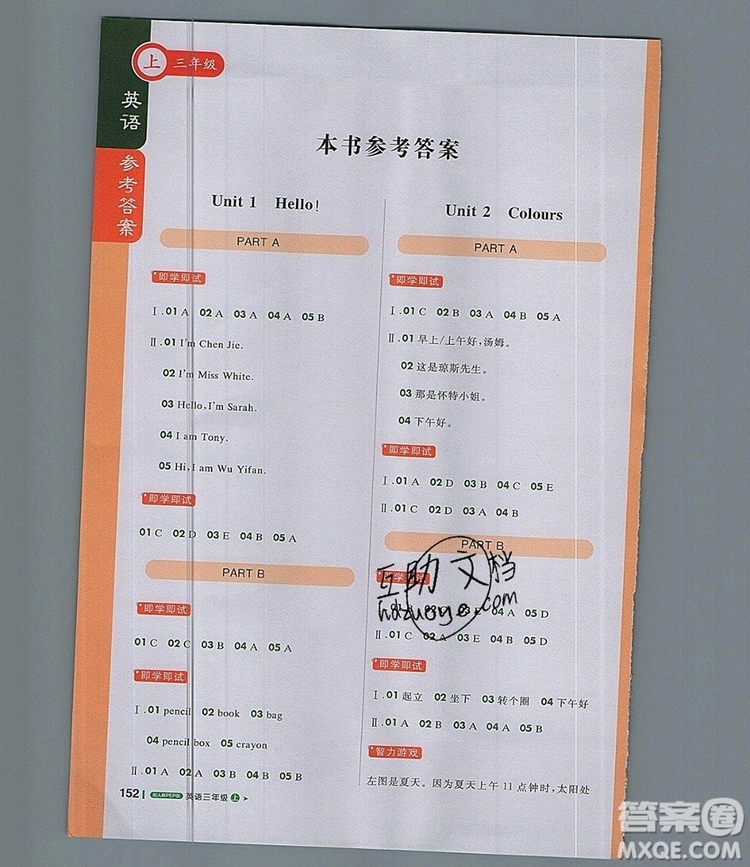 上 三年级
英语
参考答案
本书参考答案
Unit 1 Hello!
PART A
即学即试
Ⅰ.01 A 02 A 03 A 04 A 05 B
Ⅱ.01 I'm Chen Jie.
02 I'm Miss White.
03 Hello, I'm Sarah.
04 I am Tony.
05 Hi, I am Wu Yifan.
即学即试
01 C 02 D 03 E 04 B 05 A
PART B
即学即试
01 C 02 C 03 B 04 A 05 A
即学即试
Ⅰ.01 pencil 02 book 03 bag
04 pencil box 05 crayon
Ⅱ.01 B 02 A 03 A 04 B 05 B
152 配人教PEP版 英语三年级 上
Unit 2 Colours
PART A
即学即试
Ⅰ.01 C 02 B 03 A 04 B 05 A
Ⅱ.01 早上/上午好,汤姆。
02 这是琼斯先生。
03 那是怀特小姐。
04 下午好。
即学即试
Ⅰ.01 A 02 D 03 B 04 C 05 E
Ⅱ.01 C 02 D 03 A 04 B
PART B
即学即试
04 A 05 D
Ⅱ.01 C 02 A 03 E 04 B 05 D
即学即试
Ⅰ.01 起立 02 坐下 03 转个圈 04 下午好
Ⅱ.01 B 02 A 03 A 04 B 05 A
智力游戏
左图是夏天。因为夏天上午 11 点钟时,太阳处
互助文档
.com
答案圈
MXQE.COM